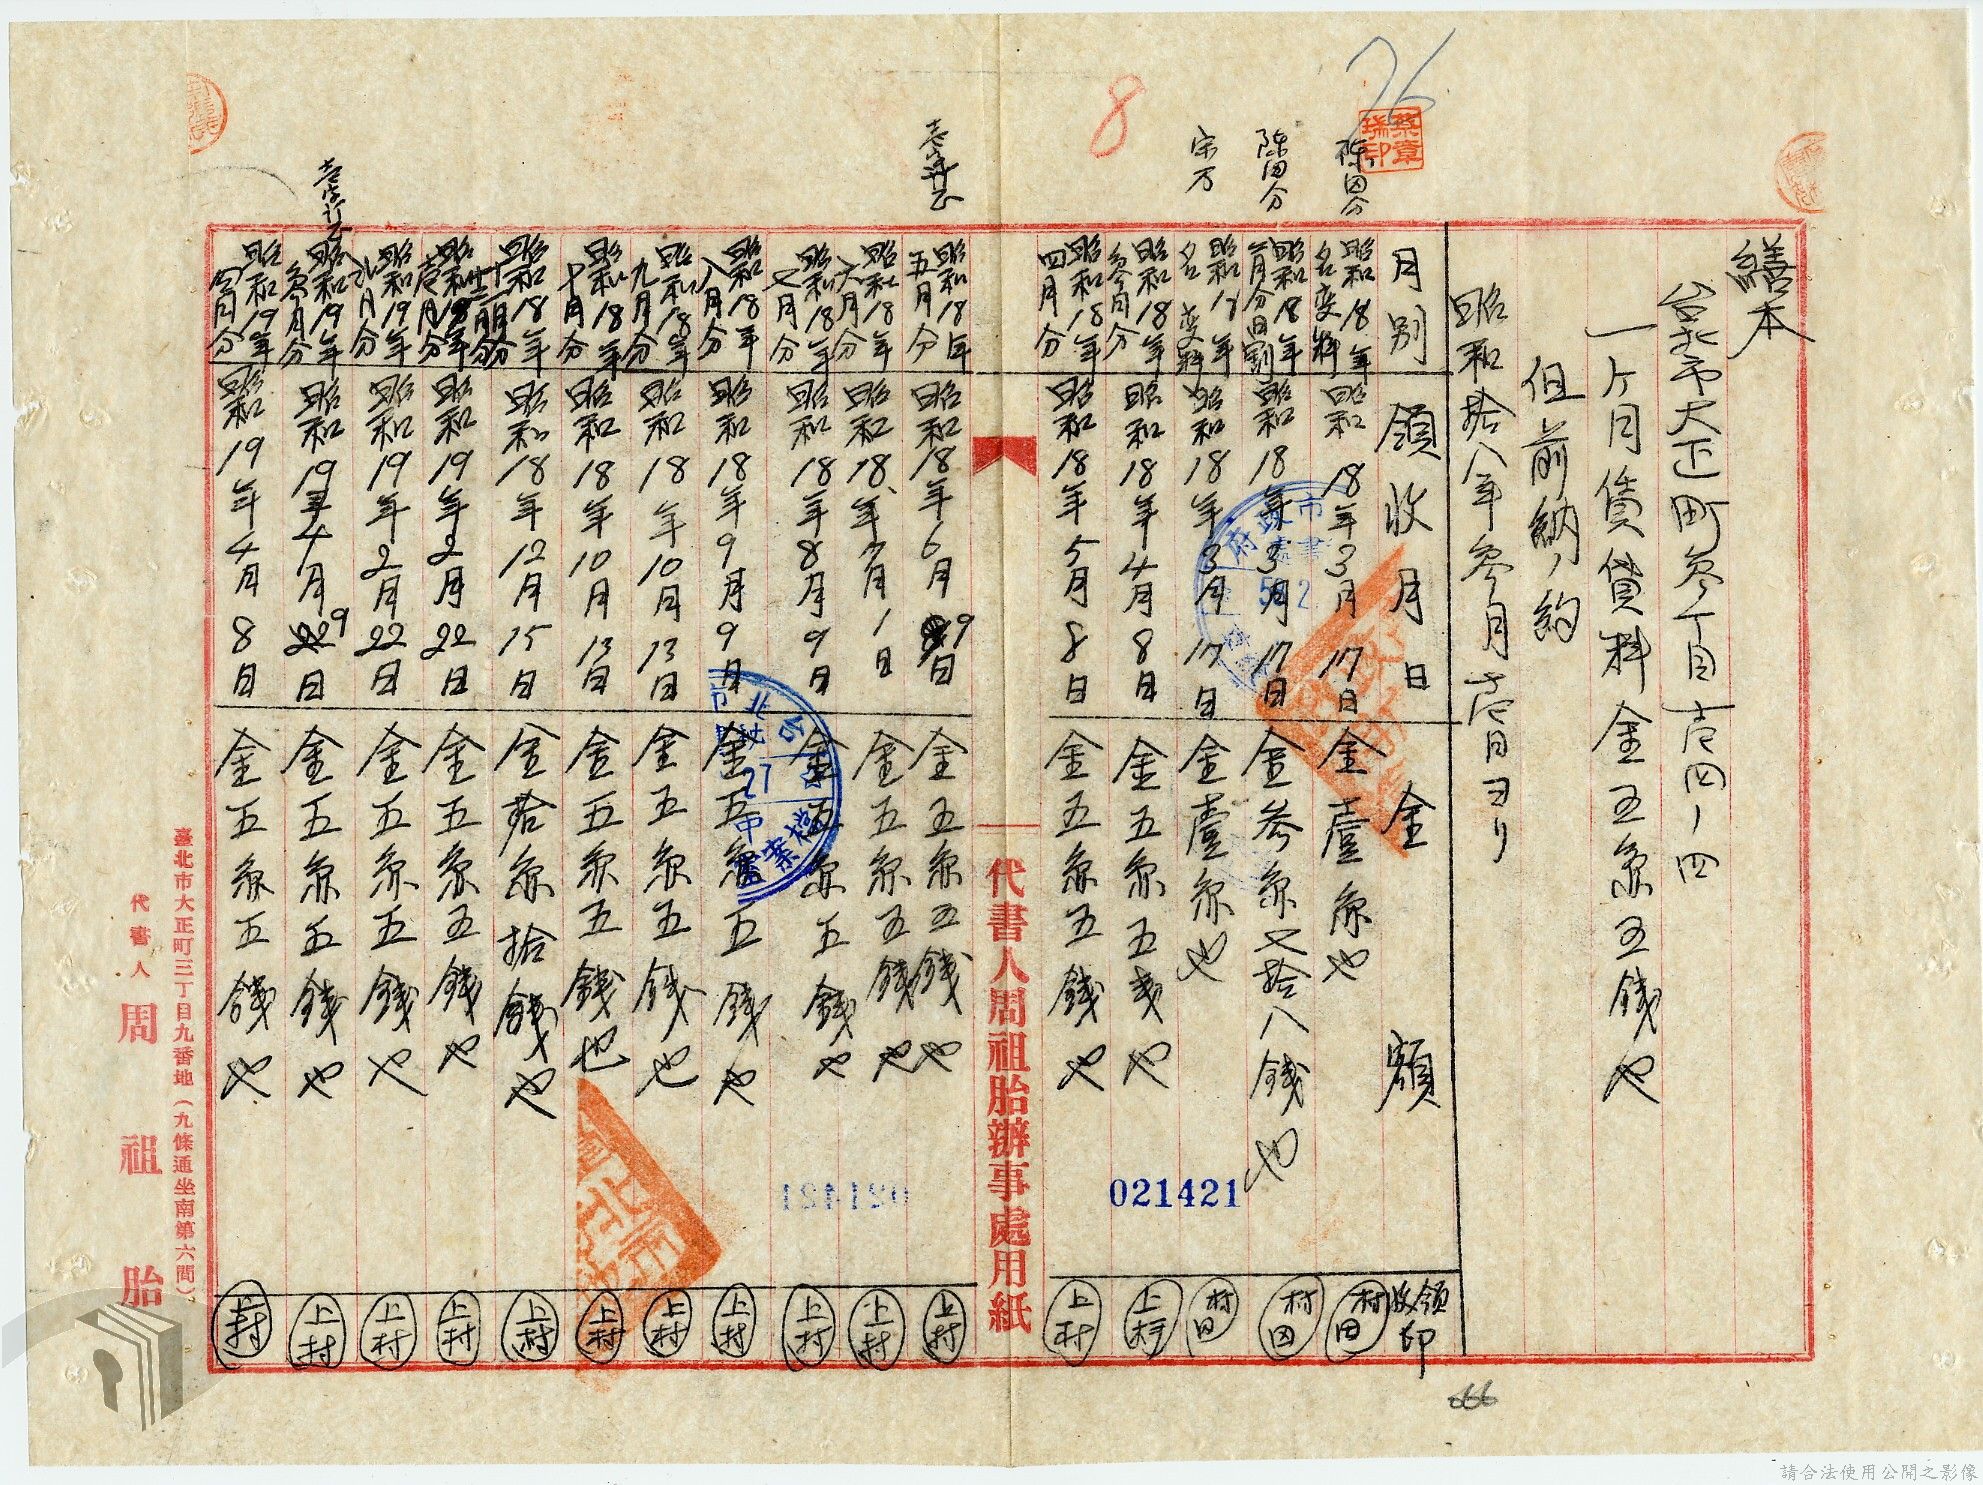 繕本
台北市大正町参丁目壱四ノ四
一ヶ月賃貸料金五円五銭也
但前納ノ約
昭和拾八年参月壱日ヨリ
月別 領收月日 金額 領收印
昭和18年名変料 昭和18年3月17日 金壹円也 村田
昭和18年 昭和18年3月17日 金参円又拾八銭也 村田
昭和18年名変料 昭和18年3月17日 金壹円也 村田
昭和18年参月分 昭和18年4月8日 金五円五銭也 上村
昭和18年四月分 昭和18年5月8日 金五円五銭也 上村
代書人周祖胎辦事處用紙
昭和18年五月分 昭和18年6月9日 金五円五銭也 上村
昭和18年六月分 昭和18年7月1日 金五円五銭也 上村
昭和18年七月分 昭和18年8月9日 金五円五銭也 上村
昭和18年八月分 昭和18年9月9日 金五円五銭也 上村
昭和18年九月分 昭和18年10月13日 金五円五銭也 上村
昭和18年十月分 昭和18年10月13日 金五円五銭也 上村
昭和18年 昭和18年12月15日 金拾円拾銭也 上村
昭和19年2月22日 金五円五銭也 上村
昭和19年 昭和19年2月22日 金五円五銭也 上村
昭和19年参月分 昭和19年4月9日 金五円五銭也 上村
昭和19年四月分 昭和19年4月8日 金五円五銭也 上村
臺北市大正町三丁目九番地（九條通坐南第六間）
代書人 周祖胎
76
8
蔡章瑞印
陳田分
陳田分
壱字訂正
021421
66
請合法使用公開之影像